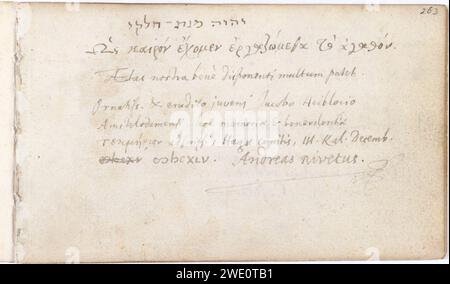 263
יהוה מנת חלקי
Ὡς καιρὸν ἔχομεν ἐργαζώμεθα τὸ ἀγαθόν.
Ætas nostra benè disponenti multum patet.
Ornatiss. & erudito juveni Jacobo Heiblocio
Amstelodamensi hoc memoriæ & benevolentiæ
τεκμήριον Hagæ Comitis, III. Kal. Decemb.
Andreas Rivetus.
alamy
Image ID: 2WE0TB1
www.alamy.com